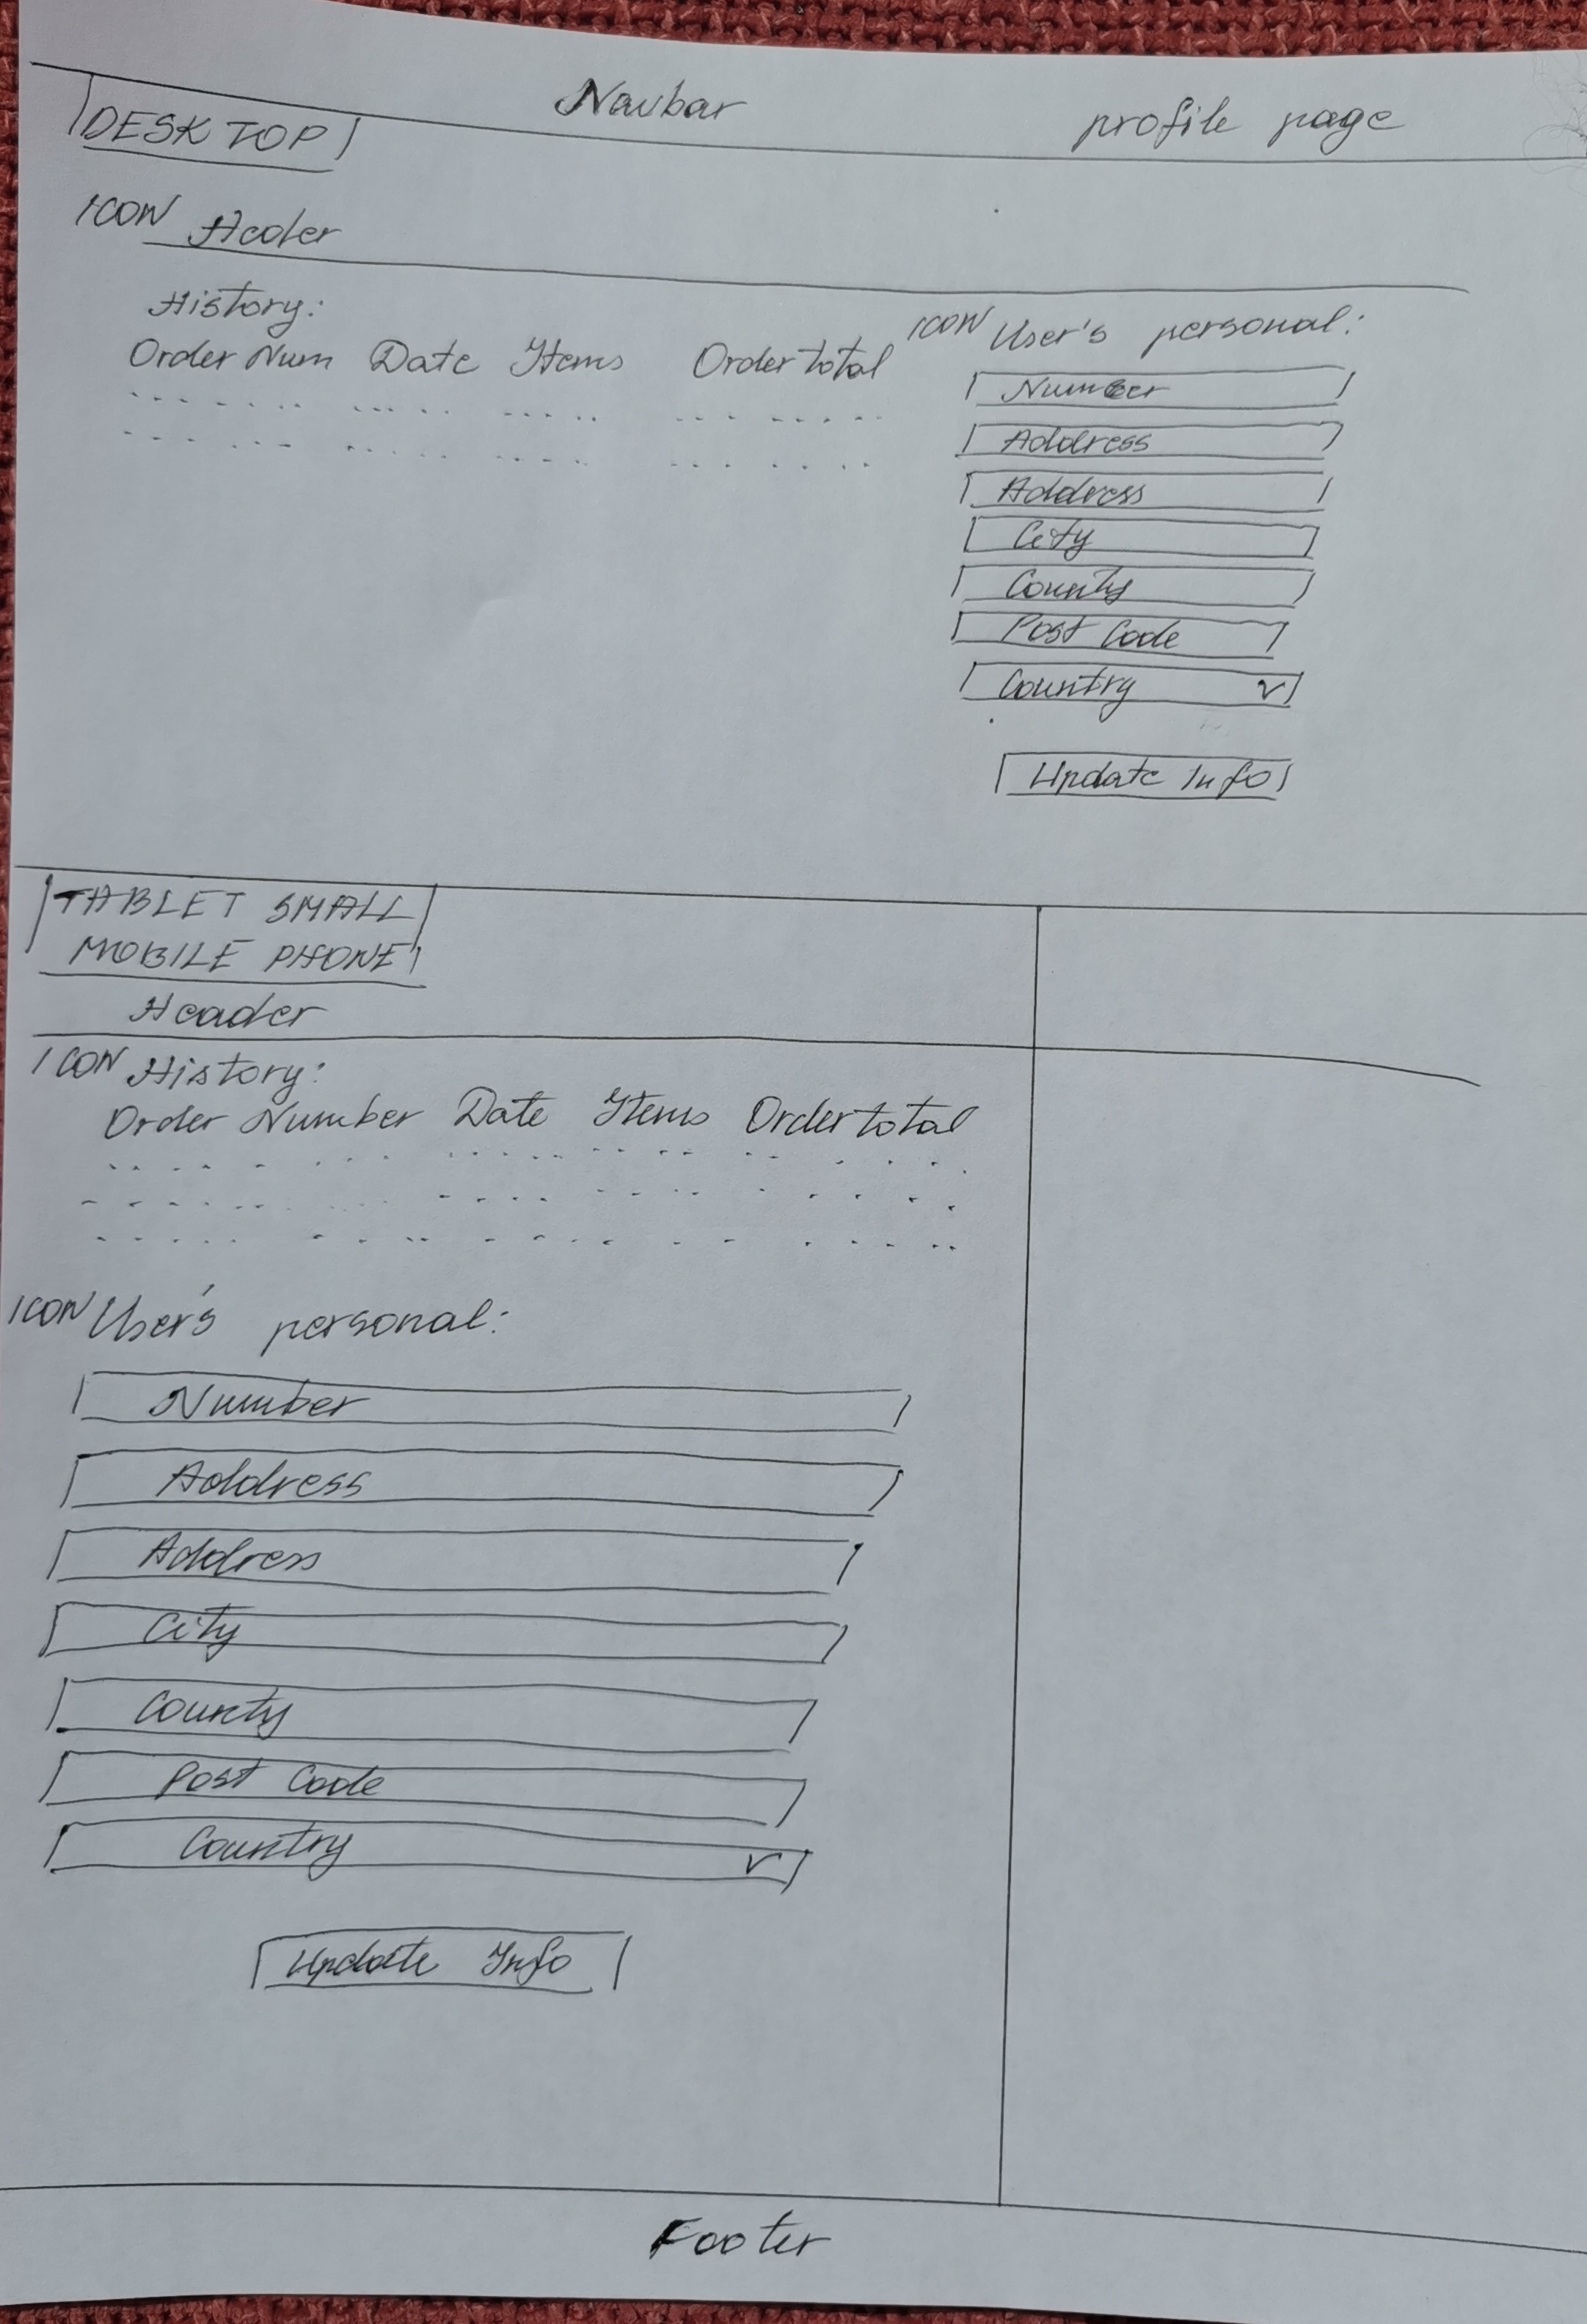 Navbar
profile page
DESKTOP
ICON Header
History:
Order Num Date Items Order total
ICON User's personal:
Number
Address
Address
City
County
Post Code
Country
Update Info
TABLET SMALL
MOBILE PHONE
Header
ICON History:
Order Number Date Items Order total
ICON User's personal:
Number
Address
Address
City
County
Post Code
Country
Update Info
Footer